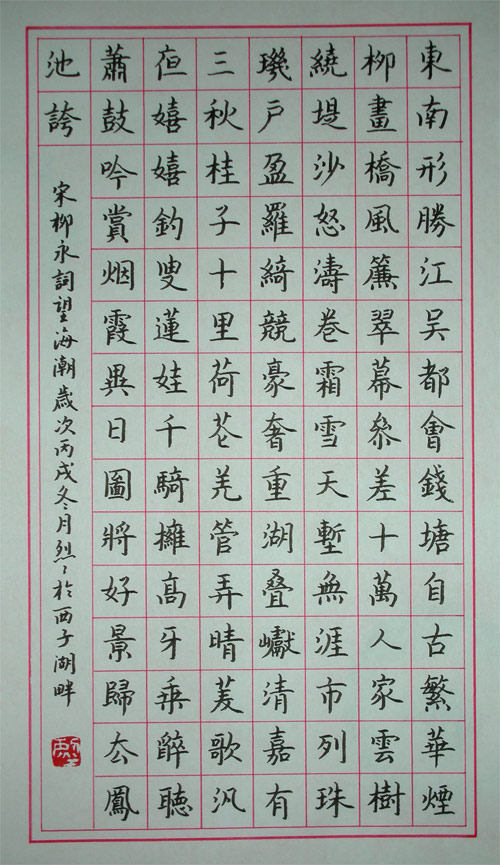 東南形勝江吴都會錢塘自古繁華煙
柳畫橋風簾翠幕叅差十萬人家雲樹
繞堤沙怒濤卷霜雪天塹無涯市列珠
璣戶盈羅綺競豪奢重湖叠巘清嘉有
三秋桂子十里荷花羌管弄晴菱歌汎
夜嬉嬉釣叟蓮娃千騎擁高牙乘醉聽
蕭鼓吟賞烟霞異日圖將好景歸去鳳
池誇
宋柳永詞望海潮歲次丙戌冬月烈〻於西子湖畔